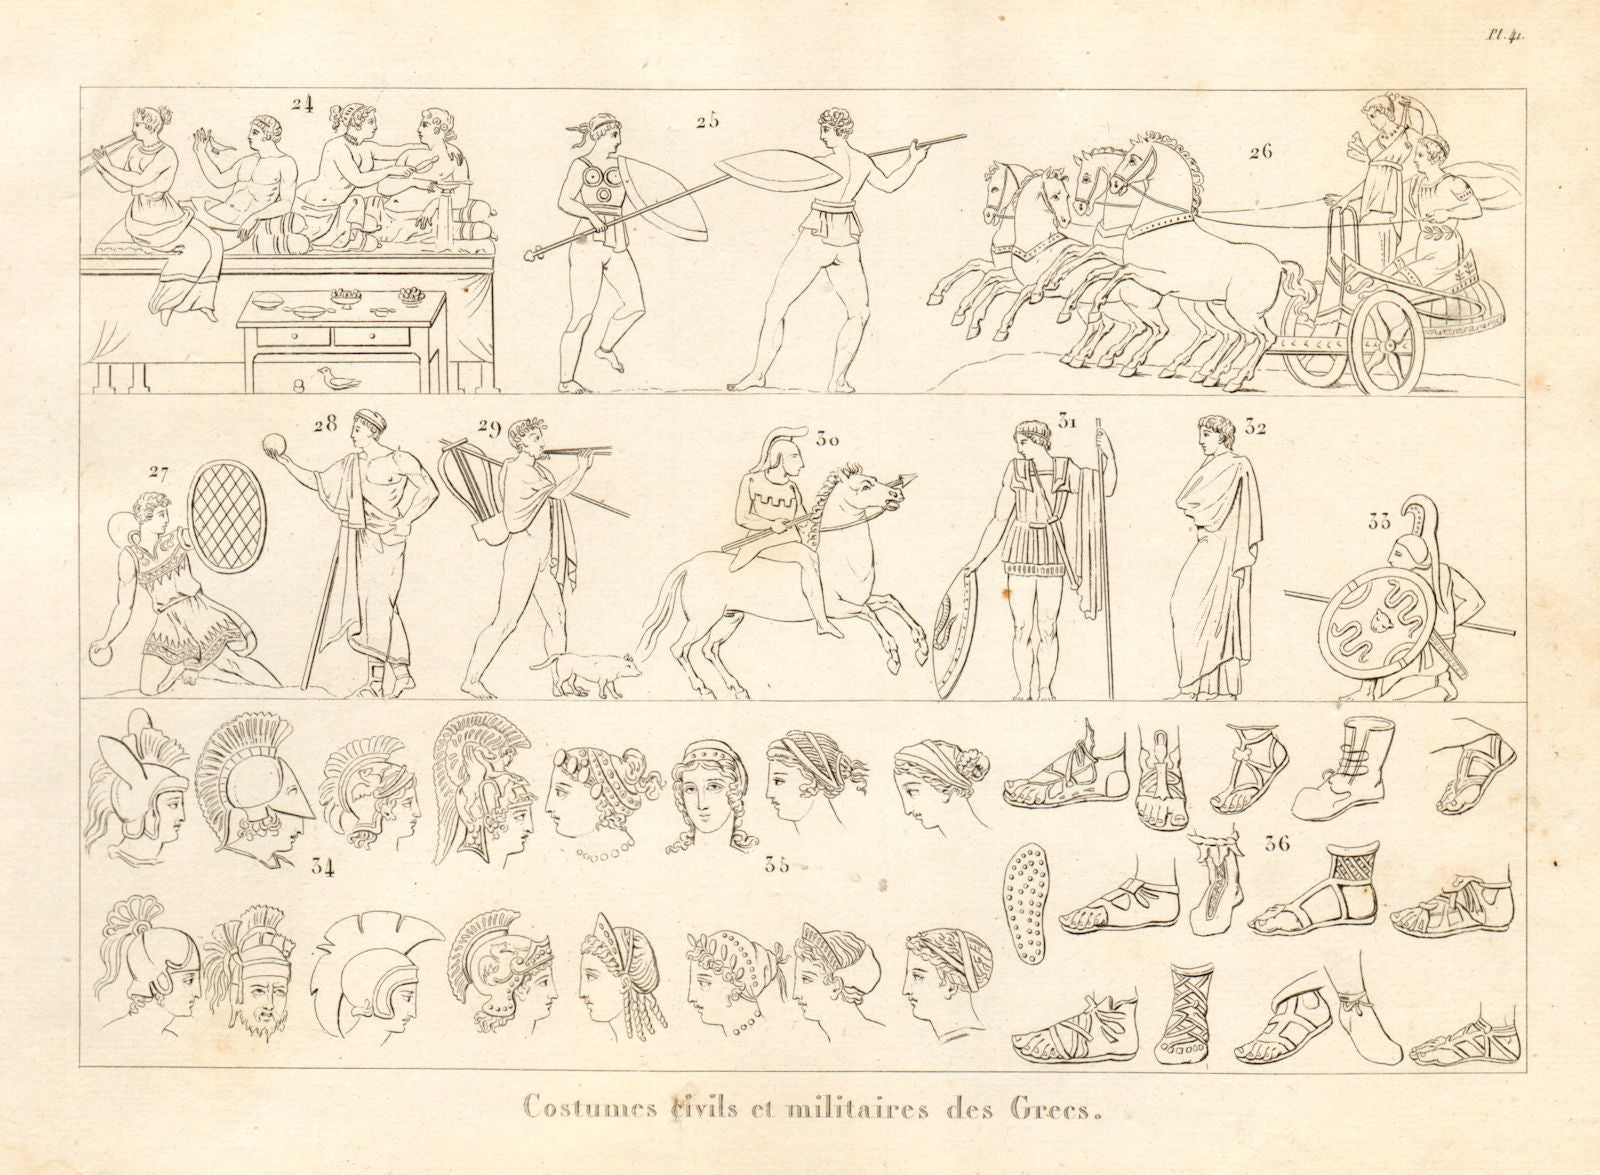 Pl. 41.
24
25
26
8
27
28
29
30
31
32
33
34
35
36
Costumes civils et militaires des Grecs.